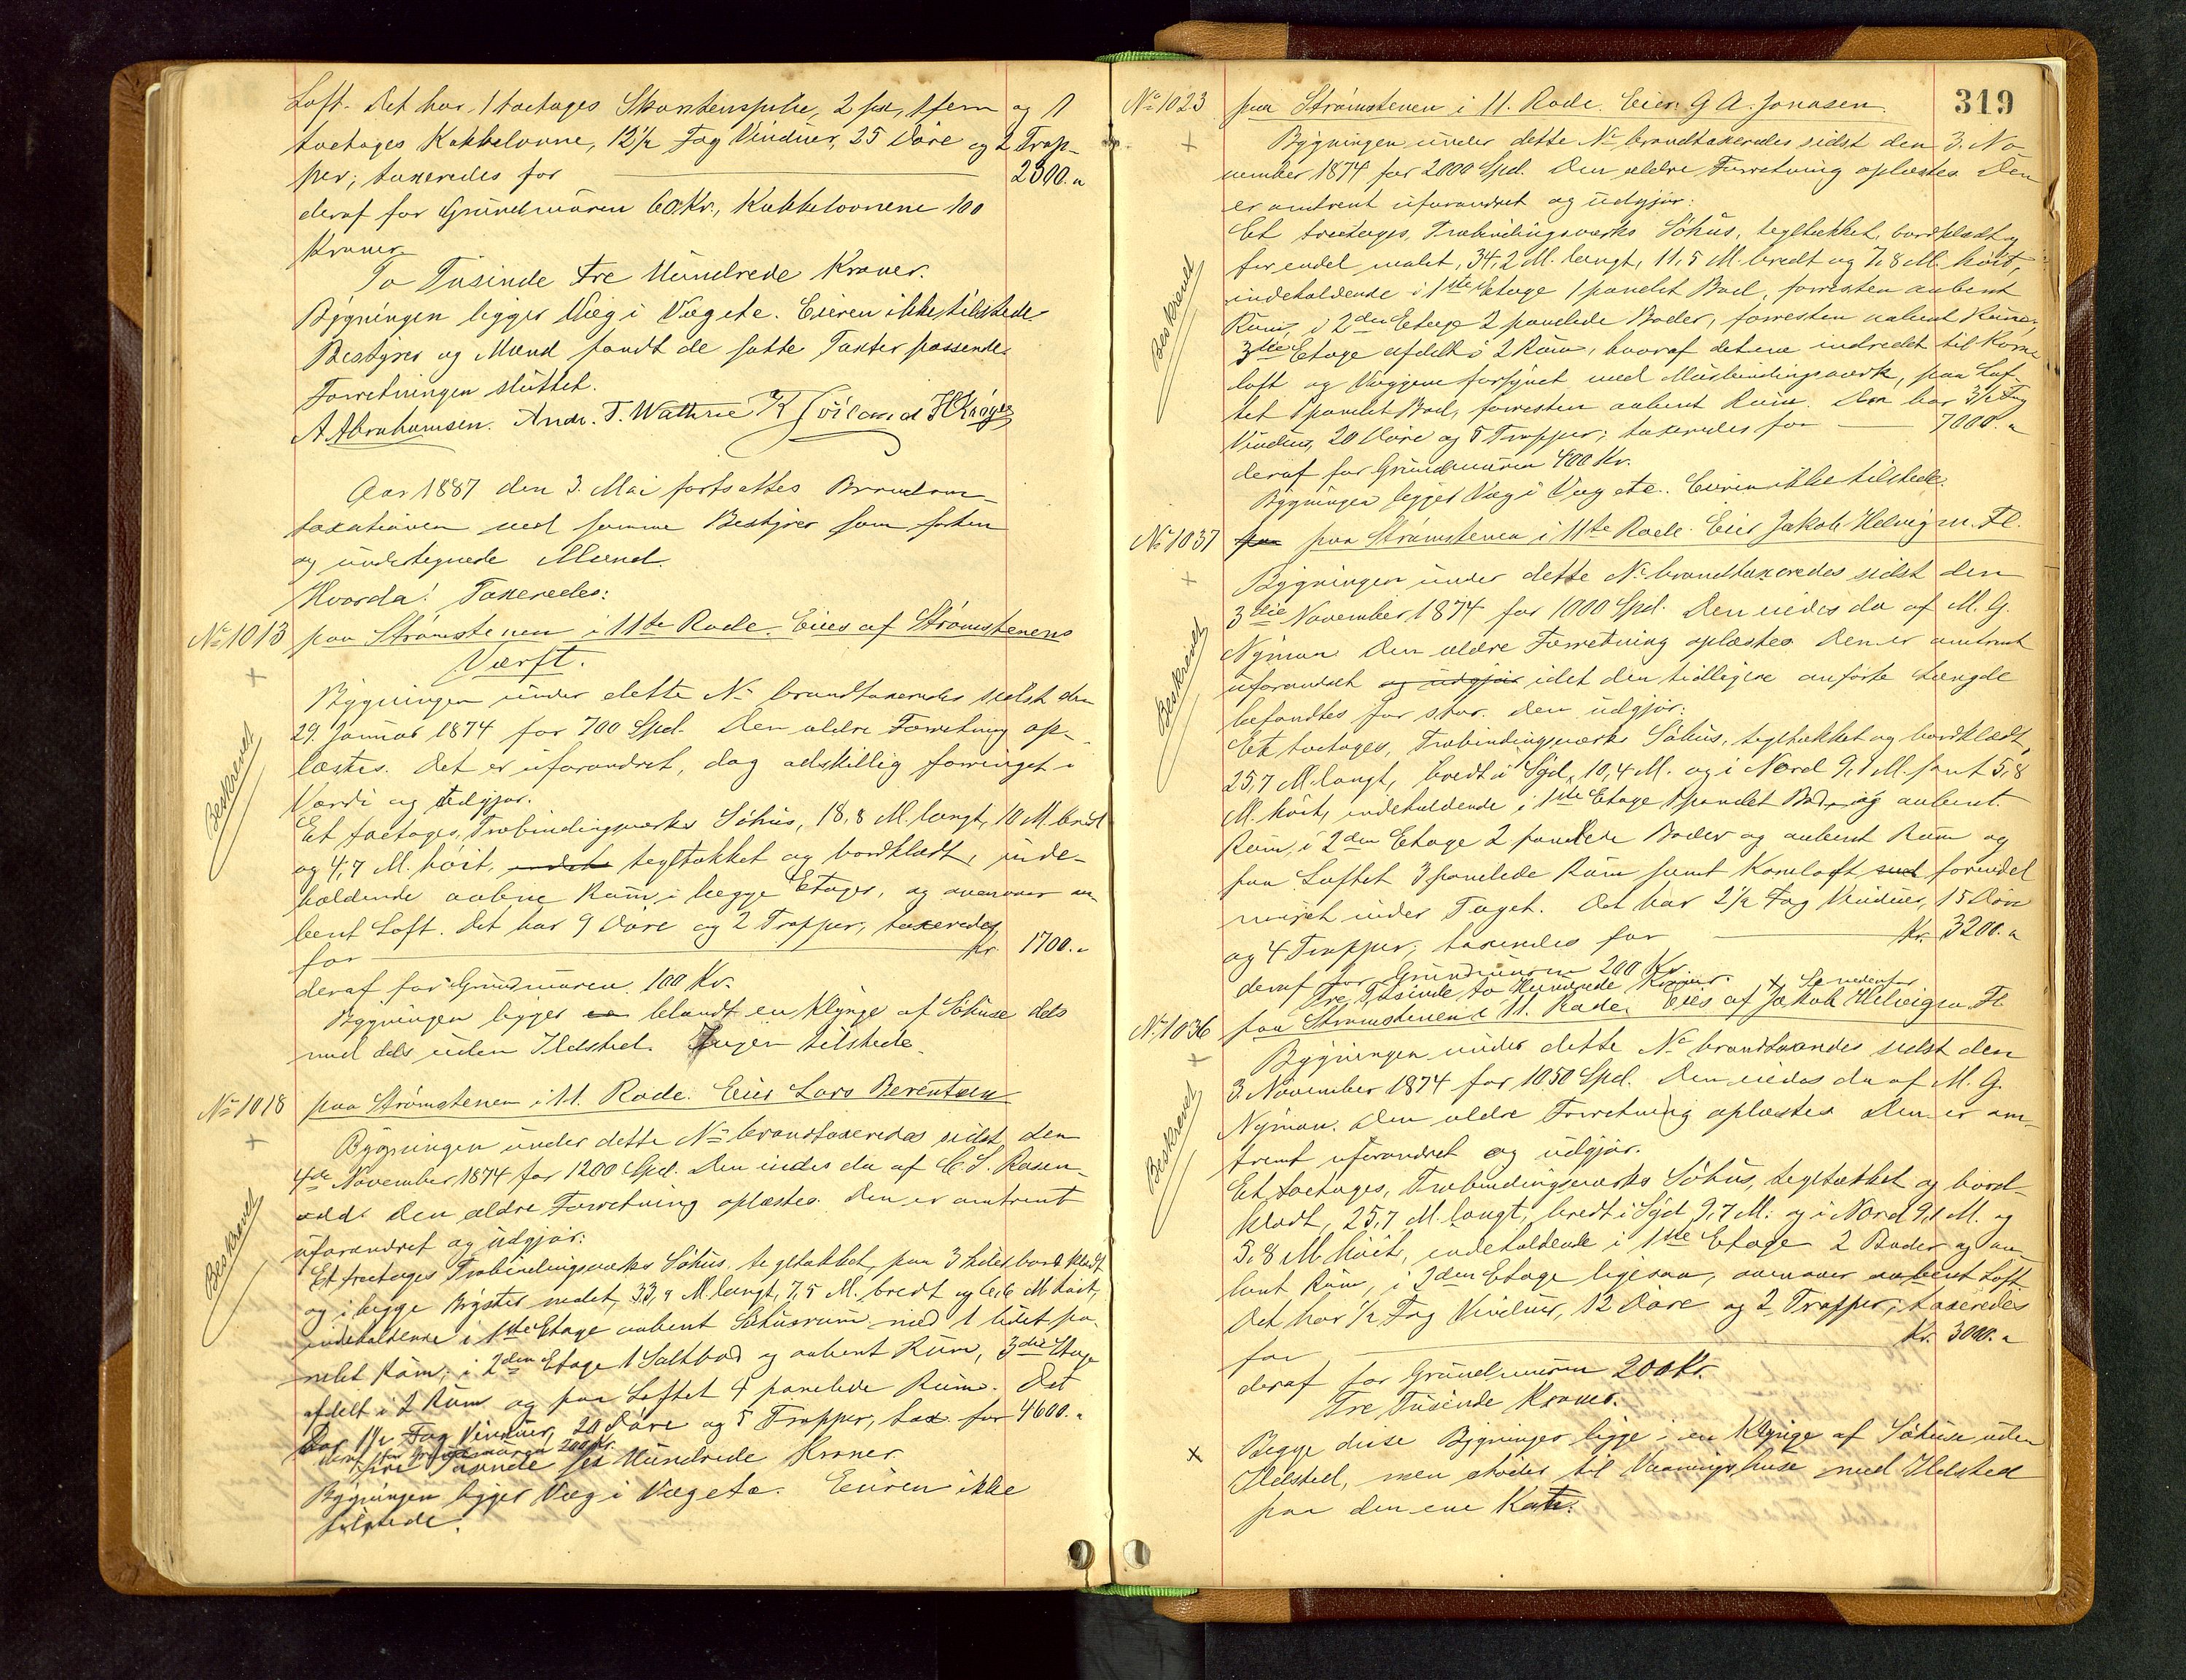 Loft. Det har 1 toetages Skorstenspibe, 2 fir, 1 fem og 1
toetages Kakkelovne, 12½ Fag Vinduer, 25 Døre og 2 Trap-
per; taxeredes for 2300.
deraf for Grundmuren 60 Kr., Kakkelovnene 100
Kroner
To Tusinde Tre Hundrede Kroner.
Bygningen ligger Væg i Væg etc. Eieren ikke tilstede
Bestyrer og Mænd fandt de satte Taxter passende.
Forretningen sluttet.
A Abrahamsen. Andr. T. Wathne H Krøger
Aar 1887 den 3. Mai fortsattes Brandom-
taxationen med samme Bestyrer som forhen
og undertegnede Mænd.
Hvorda! Taxeredes:
No 1013 paa Strømstenen i 11te Rode. Eies af Strømstenens
Værft.
Bygningen under dette No brandtaxeredes sidst den
29. Januar 1874 for 700 Spd. Den ældre Forretning op-
læstes. Det er uforandret, dog adskillig forringet i
Værdi og udgjør.
Beskrevet
Et toetages, Træbindingsværks Søhus, 18,8 M. langt, 10 M. bredt
og 4,7 M. høit, indeh teglstækket og bordklædt, inde-
holdende aabne Rum i begge Etager, og ovenover aa-
bent Loft. Det har 9 Døre og 2 Trapper, taxeredes
for Kr. 1700.
deraf for Grundmuren 100 Kr.
Bygningen ligger en blandt en Klynge af Søhuse dels
med dels uden Ildsted. Ingen tilstede.
No 1018 paa Strømstenen i 11. Rode. Eier Lars Berentsen
Bygningen under dette No brandtaxeredes sidst den
4de November 1874 for 1200 Spd. Den eiedes da af C. S. Rosen-
Den ældre Forretning oplæstes. Den er omtrent
uforandret og udgjør:
Beskrevet
Et treetages Træbindingsværks Søhus, teglstækket, paa 3 sider bordklædt
og i begge Bryster malet, 33,9 M. langt, 7,5 M. bredt og 6,6 M. høit,
indeholdende i 1ste Etage aabent Søhusrum med 1 lidet pa-
nelet Rum; i 2den Etage 1 Saltbod og aabent Rum, 3die Etage
afdelt i 2 Rum og paa Loftet 4 panelede Rum. Det
har 1½ Fag Vinduer, 20 Døre og 5 Trapper, tax. for 4600.
deraf for Grundmuren 200 Kr.
Fire Tusinde sex Hundrede Kroner.
Bygningen ligger Væg i Væg etc. Eieren ikke
tilstede.
319
No 1023 paa Strømstenen i 11. Rode. Eier: G A. Jonasen.
Bygningen under dette No brandtaxeredes sidst den 3. No-
vember 1874 for 2000 Spd. Den ældre Forretning oplæstes. Den
er omtrent uforandret og udgjør:
Beskrevet
Et treetages, Træbindingsværks Søhus, teglstækket, bordklædt og
for endel malet, 34,2 M. langt, 11,5 M. bredt og 7,8 M. høit,
indeholdende i 1ste Etage 1 panelet Bod, forresten aabent
Rum, i 2den Etage 2 panelede Boder, forresten aabent Rum,
3die Etage afdelt i 2 Rum, hvoraf det ene indredet til Korn-
loft og Væggene forsynet med Murbindingsværk, paa Lof-
tet 1 panelet Bod, forresten aabent Rum. Den har 3½ Fag
Vinduer, 20 Døre og 5 Trapper; taxeredes for 7000.
deraf for Grundmuren 400 Kr.
Bygningen ligger Væg i Væg etc. Eieren ikke tilstede.
No 1037 paa paa Strømstenen i 11te Rode. Eier Jakob Helvig m. Fl.
Bygningen under dette No brandtaxeredes sidst den
3die November 1874 for 1000 Spd. Den eiedes da af M. G.
Nyman. Den ældre Forretning oplæstes. Den er omtrent
uforandret og udgjør idet den tidligere anførte Længde
befandtes for stor. Den udgjør:
Beskrevet
Et toetages, Træbindingsværks Søhus, teglstækket og bordklædt,
25,7 M. langt, bredt i Syd 10,4 M. og i Nord 9,1 M. samt 5,8
M. høit, indeholdende i 1ste Etage 1 panelet Bod, og aabent
Rum, i 2den Etage 2 panelede Boder og aabent Rum og
paa Loftet 3 panelede Rum samt Kornloft samt forendel
muret under Taget. Det har 2½ Fag Vinduer, 15 Døre
og 4 Trapper; taxeredes for Kr. 3200.
deraf for Grundmuren 200 Kr.
Tre Tusinde to Hundrede Kroner. x Se nedenfor
No 1036 paa Strømstenen i 11. Rode. Eies af Jakob Helvig m. Fl
Bygningen under dette No brandtaxeredes sidst den
3. November 1874 for 1050 Spd. Den eiedes da af M. G.
Nyman. Den ældre Forretning oplæstes. Den er om-
trent uforandret og udgjør.
Beskrevet
Et toetages, Træbindingsværks Søhus, teglstækket og bord-
klædt, 25,7 M. langt, bredt i Syd 9,7 M. og i Nord 9,1 M. og
5,8 M. høit, indeholdende i 1ste Etage 2 Boder og aa-
bent Rum, i 2den Etage ligesaa, ovenover aabent Loft.
Det har ½ Fag Vinduer, 12 Døre og 2 Trapper; taxeredes
for Kr. 3000.
deraf for Grundmuren 200 Kr.
Tre Tusinde Kroner.
x Begge disse Bygninger ligge i en Klynge af Søhuse uden
Ildsted, men støder til Vaaningshuse med Ildsted
paa den ene Kant.